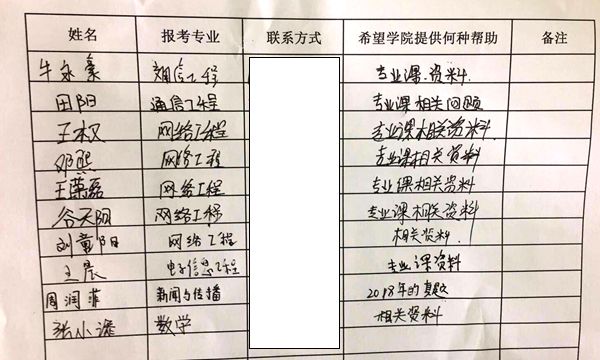 姓名 报考专业 联系方式 希望学院提供何种帮助 备注
牛永豪 通信工程 专业课.资料.
田阳 通信工程 专业课相关问题
王权 网络工程 专业课相关资料
邓熙 网络工程 专业课相关资料
王荣磊 网络工程 专业课相关资料
谷天阳 网络工程 专业课相关资料
刘童阳 网络工程 相关资料
王晨 电子信息工程 专业课资料
周润萍 新闻与传播 2018年的真题
张小 数学 相关资料